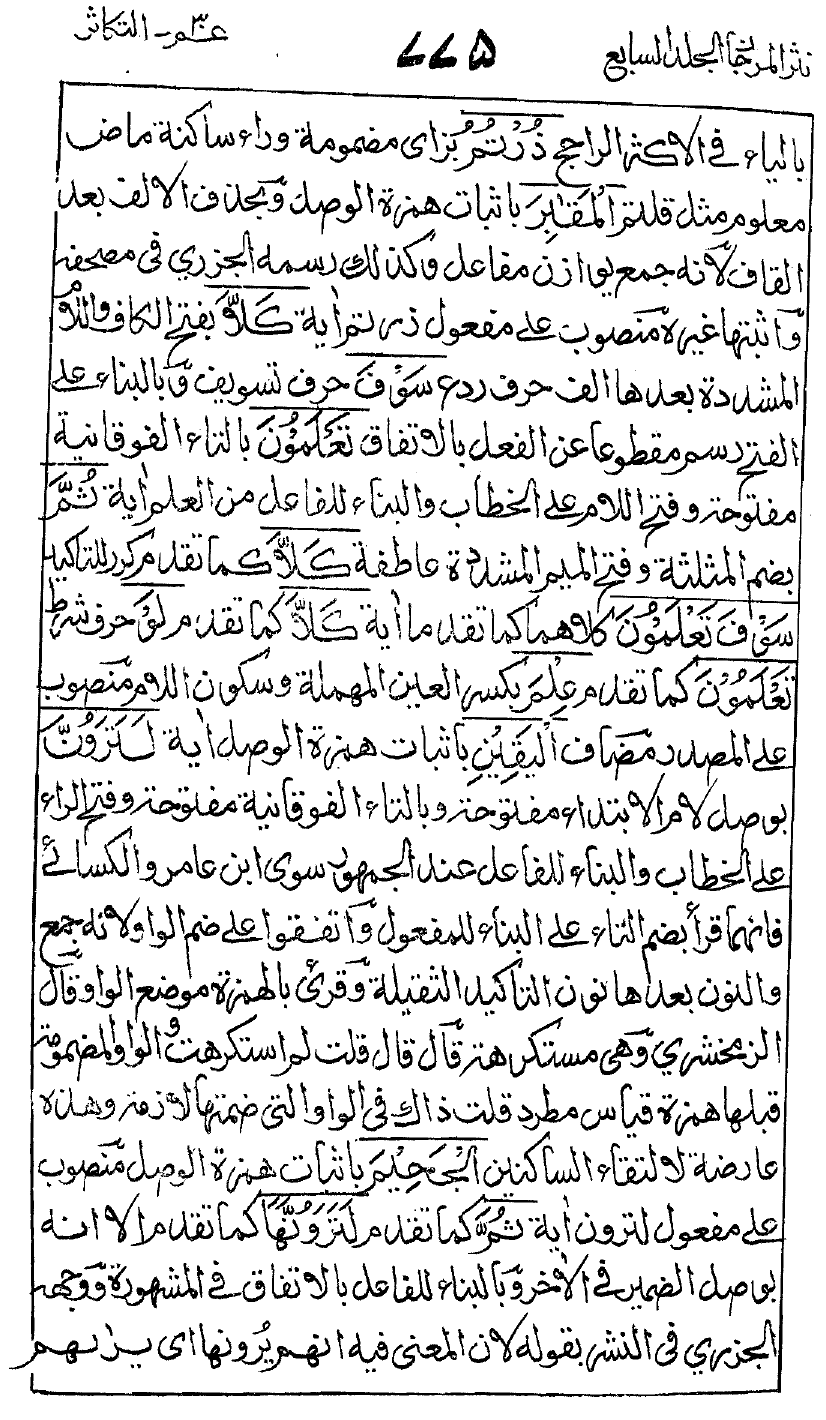 نثر المرجان المجلد السابع
٧٧٥
عم ٣٠ - التكاثر
بالياء في الاكثر الراجح زُرْتُمُ بزاى مضمومة وراء ساكنة ماض
معلوم مثل قلتم الْمَقَابِرَ باثبات همزة الوصل وبحذف الالف بعد
القاف لانه جمع يوازن مفاعل وكذلك رسمه الجزري في مصحفه
واثبتها غيره منصوب على مفعول زرتم اية كَلَّا بفتح الكاف واللام
المشددة بعدها الف حرف ردع سَوْفَ حرف تسويف وبالبناء على
الفتح رسم مقطوعا عن الفعل بالاتفاق تَعْلَمُوْنَ بالتاء الفوقانية
مفتوحة وفتح اللام على الخطاب والبناء للفاعل من العلم اية ثُمَّ
بضم المثلثة وفتح الميم المشددة عاطفة كَلَّا كما تقدم كرر للتاكيد
سَوْفَ تَعْلَمُوْنَ كلاهما كما تقدما اية كَلَّا كما تقدم لَوْ حرف شرط
تَعْلَمُوْنَ كما تقدم عِلْمَ بكسر العين المهملة وسكون اللام منصوب
على المصدر مضاف الْيَقِيْنِ باثبات همزة الوصل اية لَتَرَوُنَّ
بوصل لام الابتداء مفتوحة وبالتاء الفوقانية مفتوحة وفتح الراء
على الخطاب والبناء للفاعل عند الجمهور سوى ابن عامر والكسائے
فانهما قرأ بضم التاء على البناء للمفعول واتفقوا على ضم الواو لانه جمع
والنون بعدها نون التاكيد الثقيلة وقرئ بالهمزة موضع الواو قال
الزمخشري وهي مستكرهة قال قال قلت لم استكرهت والواو المضمومة
قبلها همزة قياس مطرد قلت ذاك في الواو التي ضمتها لازمة وهذه
عارضة لالتقاء الساكنين الْجَحِيْمَ باثبات همزة الوصل منصوب
على مفعول لترون اية ثُمَّ كما تقدم لَتَرَوُنَّهَا كما تقدم الا انه
بوصل الضمير في الاٰخر وبالبناء للفاعل بالاتفاق في المشهورة ووجهه
الجزري في النشر بقوله لان المعنى فيه انهم يُرونها اى يراهم